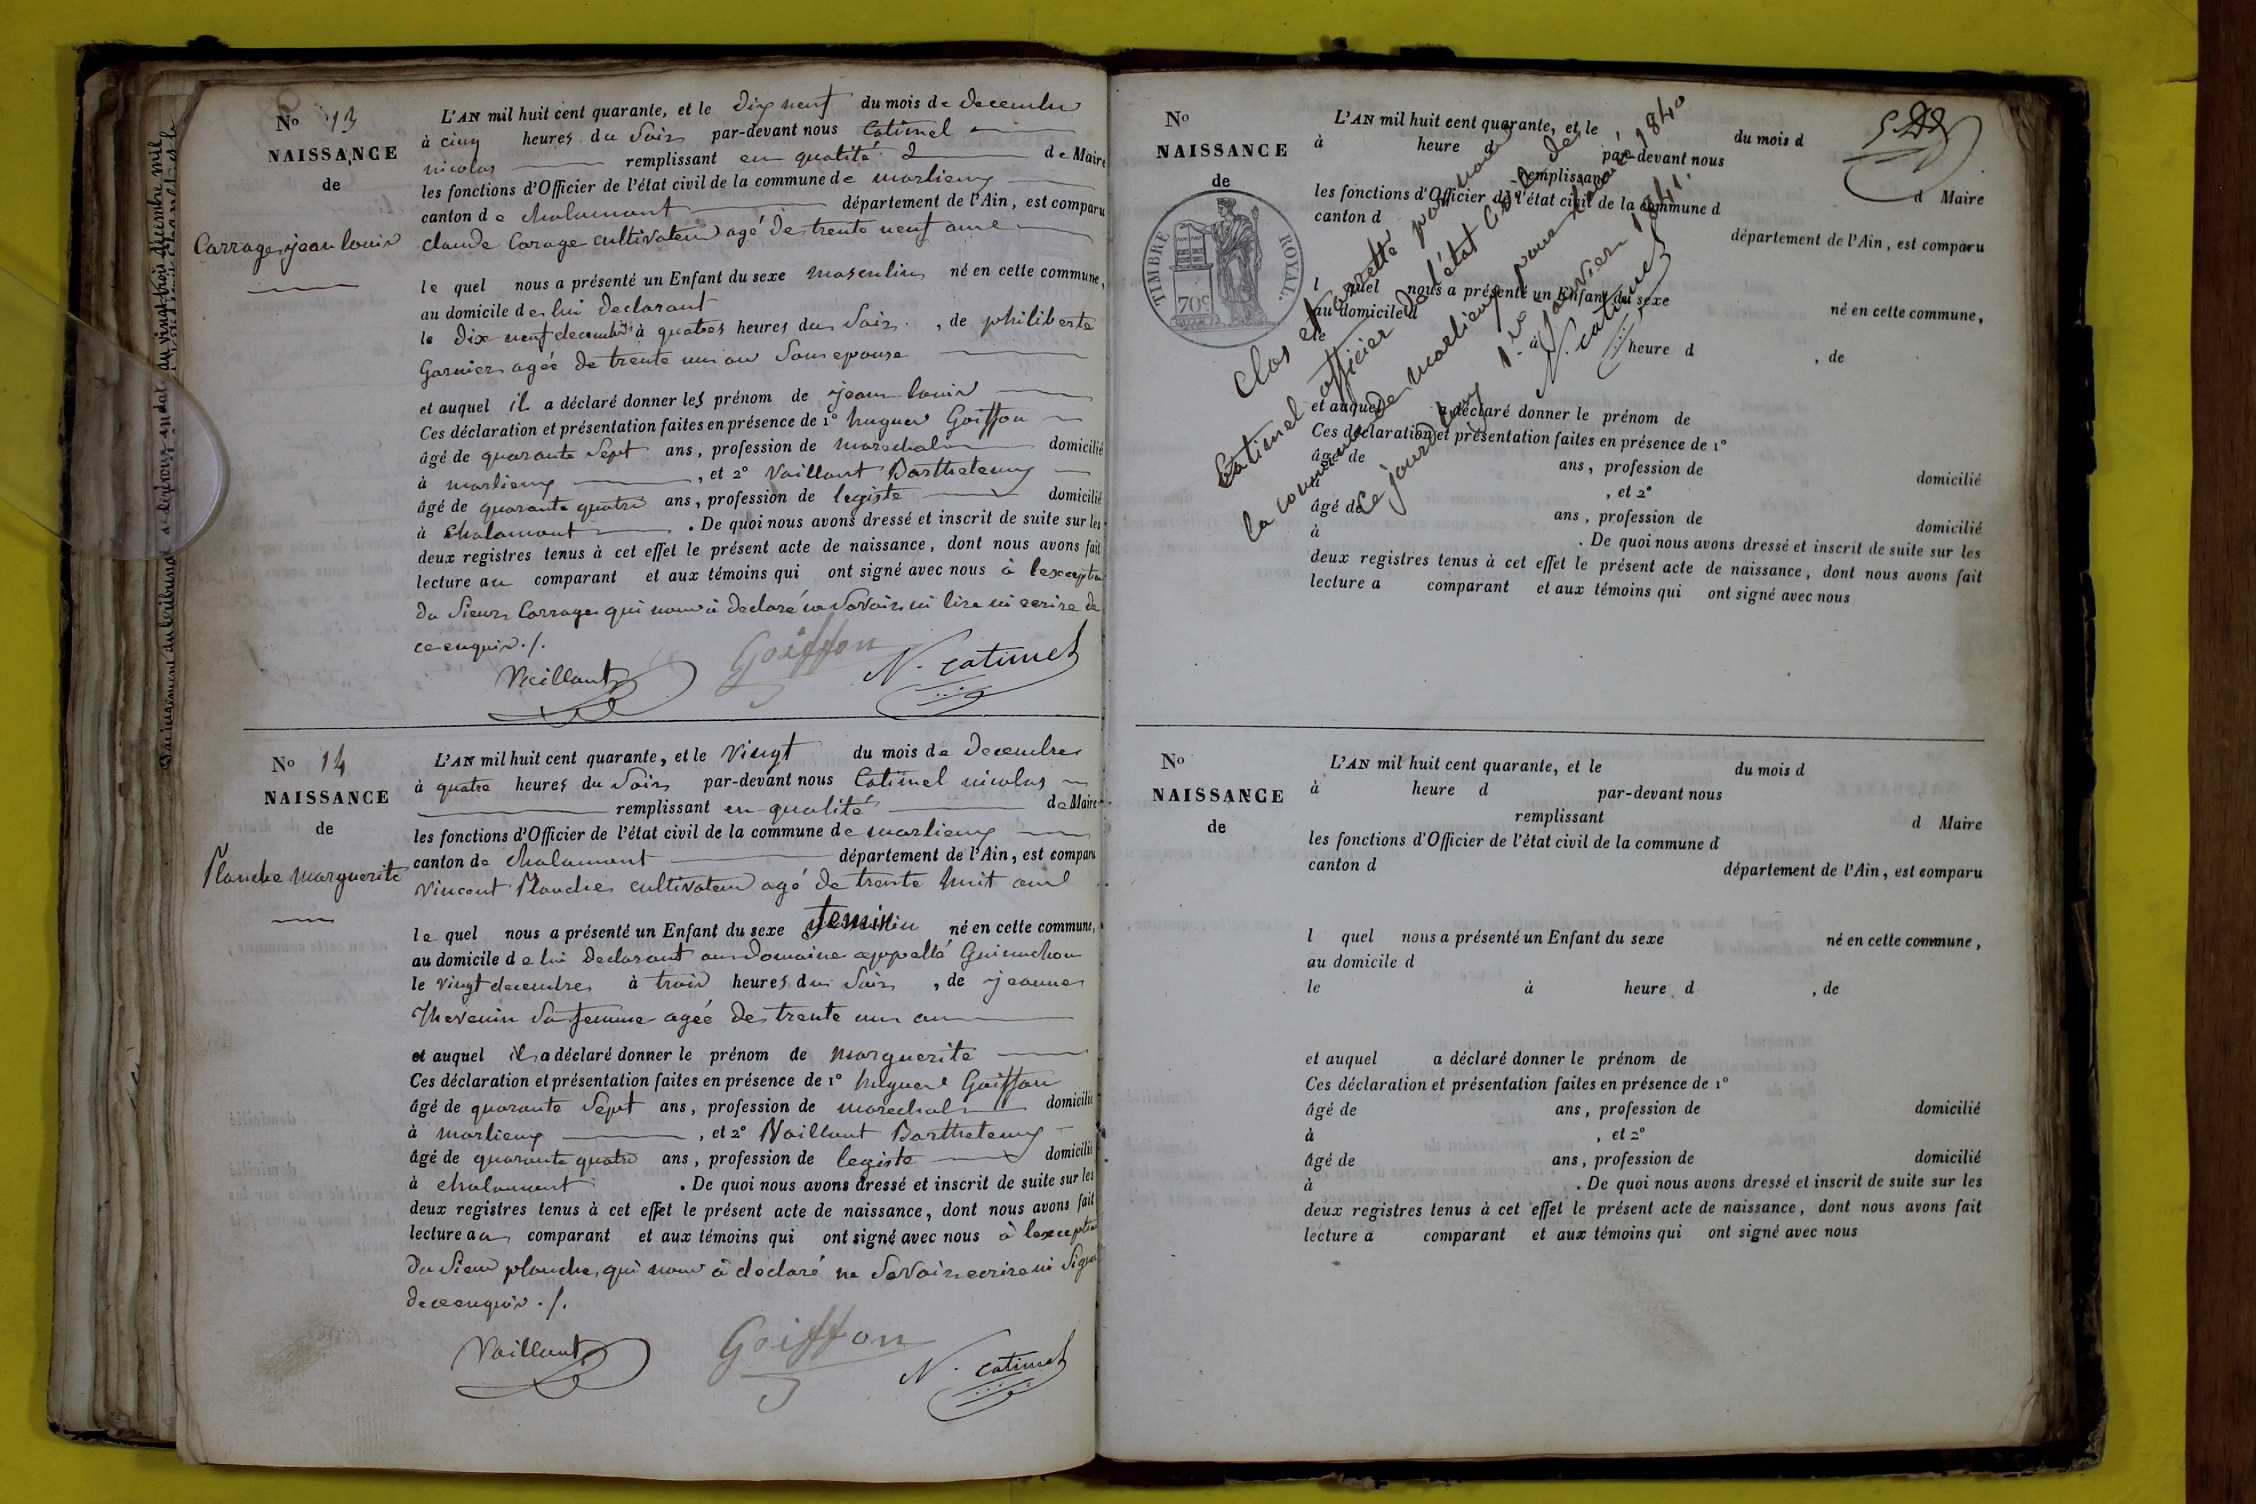 No 13
NAISSANCE
de
Carrage jean louis
L'AN mil huit cent quarante, et le dix neuf du mois de decembre
à cinq heures du Soir par-devant nous Catimel
nicolas remplissant en qualité d de Maire
les fonctions d'Officier de l'état civil de la commune de marlieux
canton de chalamont département de l'Ain, est comparu
claude Carage cultivateur agé de trente neuf ans
le quel nous a présenté un Enfant du sexe masculin né en cette commune,
au domicile de lui declarant
le dix neuf decembre à quatres heures du Soir , de philiberte
Garnier agéé de trente un an Son epouse
et auquel il a déclaré donner les prénom de jean louis
Ces déclaration et présentation faites en présence de 1° hugues Goiffon
âgé de quarante Sept ans, profession de marechal domicilié
à marlieux , et 2° Vaillant Barthelemy
âgé de quarante quatre ans, profession de legiste domicilié
à chalamont . De quoi nous avons dressé et inscrit de suite sur les
deux registres tenus à cet effet le présent acte de naissance, dont nous avons fait
lecture au comparant et aux témoins qui ont signé avec nous à lexception
du Sieur Carrage qui nous à declaré ne Savoir ni lire ni ecrire de
ce enquis ./.
Vaillant Goiffon N. Catimel
No 14
NAISSANCE
de
Planche marguerite
L'AN mil huit cent quarante, et le Vingt du mois de decembre
à quatre heures du Soir par-devant nous Catimel nicolas
remplissant en qualité de Maire
les fonctions d'Officier de l'état civil de la commune de marlieux
canton de chalamont département de l'Ain, est comparu
Vincent Planche cultivateur agé de trente huit ans
le quel nous a présenté un Enfant du sexe feminin né en cette commune,
au domicile de lui declarant au Domaine appellé Guimchon
le vingt decembre à trois heures du Soir , de jeanne
Thevenin Sa femme agéé de trente un an
et auquel il a déclaré donner le prénom de marguerite
Ces déclaration et présentation faites en présence de 1° hugues Goiffon
âgé de quarante Sept ans, profession de marechal domicilié
à marlieux , et 2° Vaillant Barthelemy
âgé de quarante quatre ans, profession de legiste domicilié
à chalamont . De quoi nous avons dressé et inscrit de suite sur les
deux registres tenus à cet effet le présent acte de naissance, dont nous avons fait
lecture au comparant et aux témoins qui ont signé avec nous à lexception
du Sieur planche, qui nous à declaré ne Savoir ecrire ni Signer
de ce enquis ./.
Vaillant Goiffon N. Catimel
No
NAISSANCE
de
TIMBRE ROYAL.
70c
L'AN mil huit cent quarante, et le du mois d
à heure d par-devant nous
remplissant d Maire
les fonctions d'Officier de l'état civil de la commune d
canton d département de l'Ain, est comparu
l quel nous a présenté un Enfant du sexe né en cette commune,
au domicile d
le à heure d , de
et auquel a déclaré donner le prénom de
Ces déclaration et présentation faites en présence de 1°
âgé de ans, profession de domicilié
à , et 2°
âgé de ans, profession de domicilié
à . De quoi nous avons dressé et inscrit de suite sur les
deux registres tenus à cet effet le présent acte de naissance, dont nous avons fait
lecture a comparant et aux témoins qui ont signé avec nous
Clos et arretté par nous
Catimel officier de l'état Civil de
la commune de marlieux pour l'année 1840
ce jourdhuy 1er janvier 1841.
N. Catimel
No
NAISSANCE
de
L'AN mil huit cent quarante, et le du mois d
à heure d par-devant nous
remplissant d Maire
les fonctions d'Officier de l'état civil de la commune d
canton d département de l'Ain, est comparu
l quel nous a présenté un Enfant du sexe né en cette commune,
au domicile d
le à heure d , de
et auquel a déclaré donner le prénom de
Ces déclaration et présentation faites en présence de 1°
âgé de ans, profession de domicilié
à , et 2°
âgé de ans, profession de domicilié
à . De quoi nous avons dressé et inscrit de suite sur les
deux registres tenus à cet effet le présent acte de naissance, dont nous avons fait
lecture a comparant et aux témoins qui ont signé avec nous